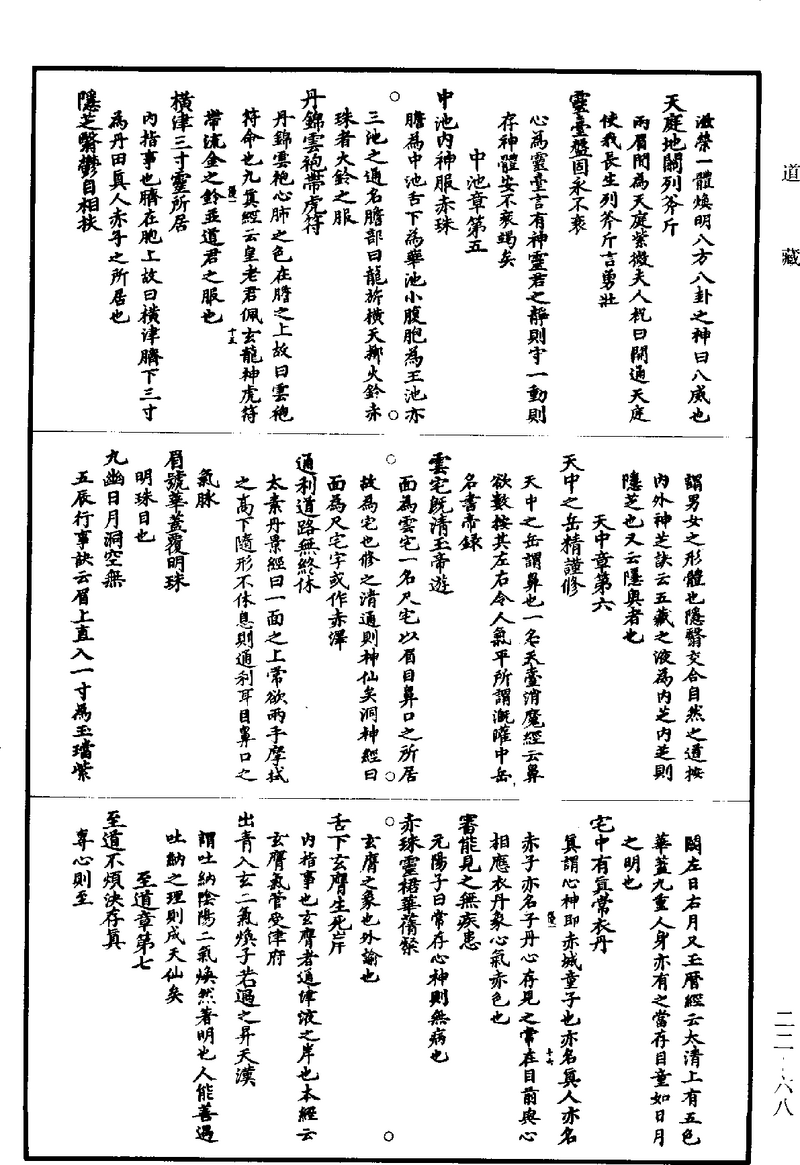 道藏
滋榮一體煥明八方八卦之神曰八威也
天庭地關列斧斤
兩眉間為天庭紫微夫人祝曰開通天庭
使我長生列斧斤言勇壯
靈臺盤固永不衰
心為靈臺言有神靈君之靜則守一動則
存神體安不衰竭矣
中池章第五
中池內神服赤珠
膽為中池舌下為華池小腹胞為玉池亦
三池之通名膽部曰龍旂橫天擲火鈴赤
珠者火鈴之服
丹錦雲袍帶虎符
丹錦雲袍心肺之色在膽之上故曰雲袍
符命也九真經云皇老君佩玄龍神虎符
帶流金之鈴並道君之服也
橫津三寸靈所居
內指事也臍在胞上故曰橫津臍下三寸
為丹田真人赤子之所居也
隱芝翳鬱自相扶
謂男女之形體也隱翳交合自然之道按
內外神芝訣云五藏之液為內芝內芝則
隱芝也又云隱奧者也
天中章第六
天中之岳精謹修
天中之岳謂鼻也一名天臺消魔經云鼻
欲數按其左右令人氣平所謂溉灌中岳
名書帝錄
雲宅既清玉帝遊
面為雲宅一名尺宅以眉目鼻口之所居
故為宅也修之清通則神仙矣洞神經曰
面為尺宅字或作赤澤
通利道路無終休
太素丹景經曰一面之上常欲兩手摩拭
之高下隨形不休息則通利耳目鼻口之
氣脉
眉號華蓋覆明珠
明珠目也
九幽日月洞空無
五辰行事訣云眉上直入一寸為玉璫紫
闕左日右月又玉曆經云太清上有五色
華蓋九重人身亦有之當存目童如日月
之明也
宅中有真常衣丹
真謂心神即赤城童子也亦名真人亦名
赤子亦名子丹心存見之常在目前與心
相應衣丹象心氣赤色也
審能見之無疾患
元陽子曰常存心神則無病也
赤珠靈裙華蒨粲
玄膺之象也外諭也
舌下玄膺生死岸
內指事也玄膺者通津液之岸也本經云
玄膺氣管受津府
出青入玄二氣煥子若遇之昇天漢
謂吐納陰陽二氣煥然著明也人能善遇
吐納之理則成天仙矣
至道章第七
至道不煩決存真
專心則至
二二-六八